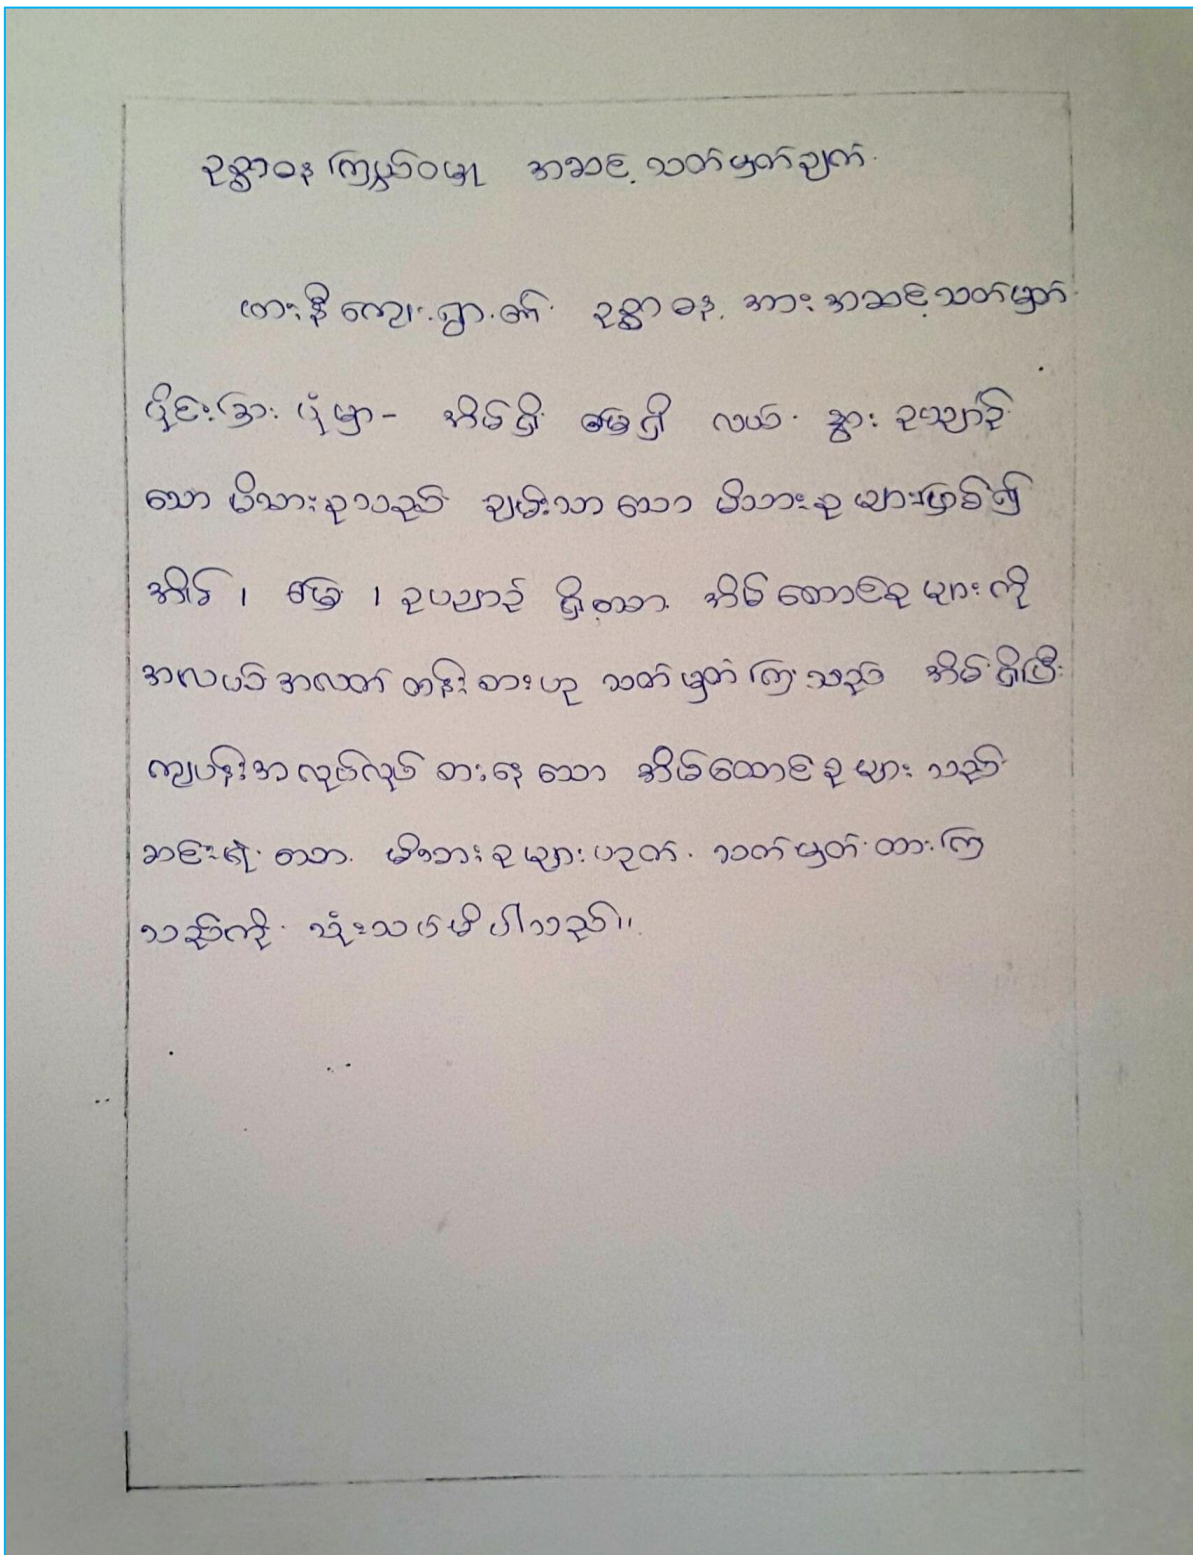 ဥစ္စာဓန ကြွယ်ဝမှု အဆင့် သတ်မှတ်ချက်
ကျေးရွာ၏ ဥစ္စာဓန အား အဆင့်သတ်မှတ်
ပိုင်းခြား ပုံမှာ- အိမ်ရှိ မြေရှိ လယ် နွား ဥယျာဉ်
သော မိသားစုသည် ချမ်းသာသော မိသားစု များဖြစ်၍
အိမ် ၊ မြေ ၊ ဥယျာဉ် ရှိသော အိမ်ထောင်စု များကို
အလယ်အလတ် တန်းစားဟု သတ်မှတ်ကြသည် အိမ်ရှိပြီး
ကျပန်းအလုပ်လုပ် စားနေသော အိမ်ထောင်စု များသည်
ဆင်းရဲသော မိသားစုများဟူ၍ သတ်မှတ်ထားကြ
သည်ကို သုံးသပ်မိပါသည်။